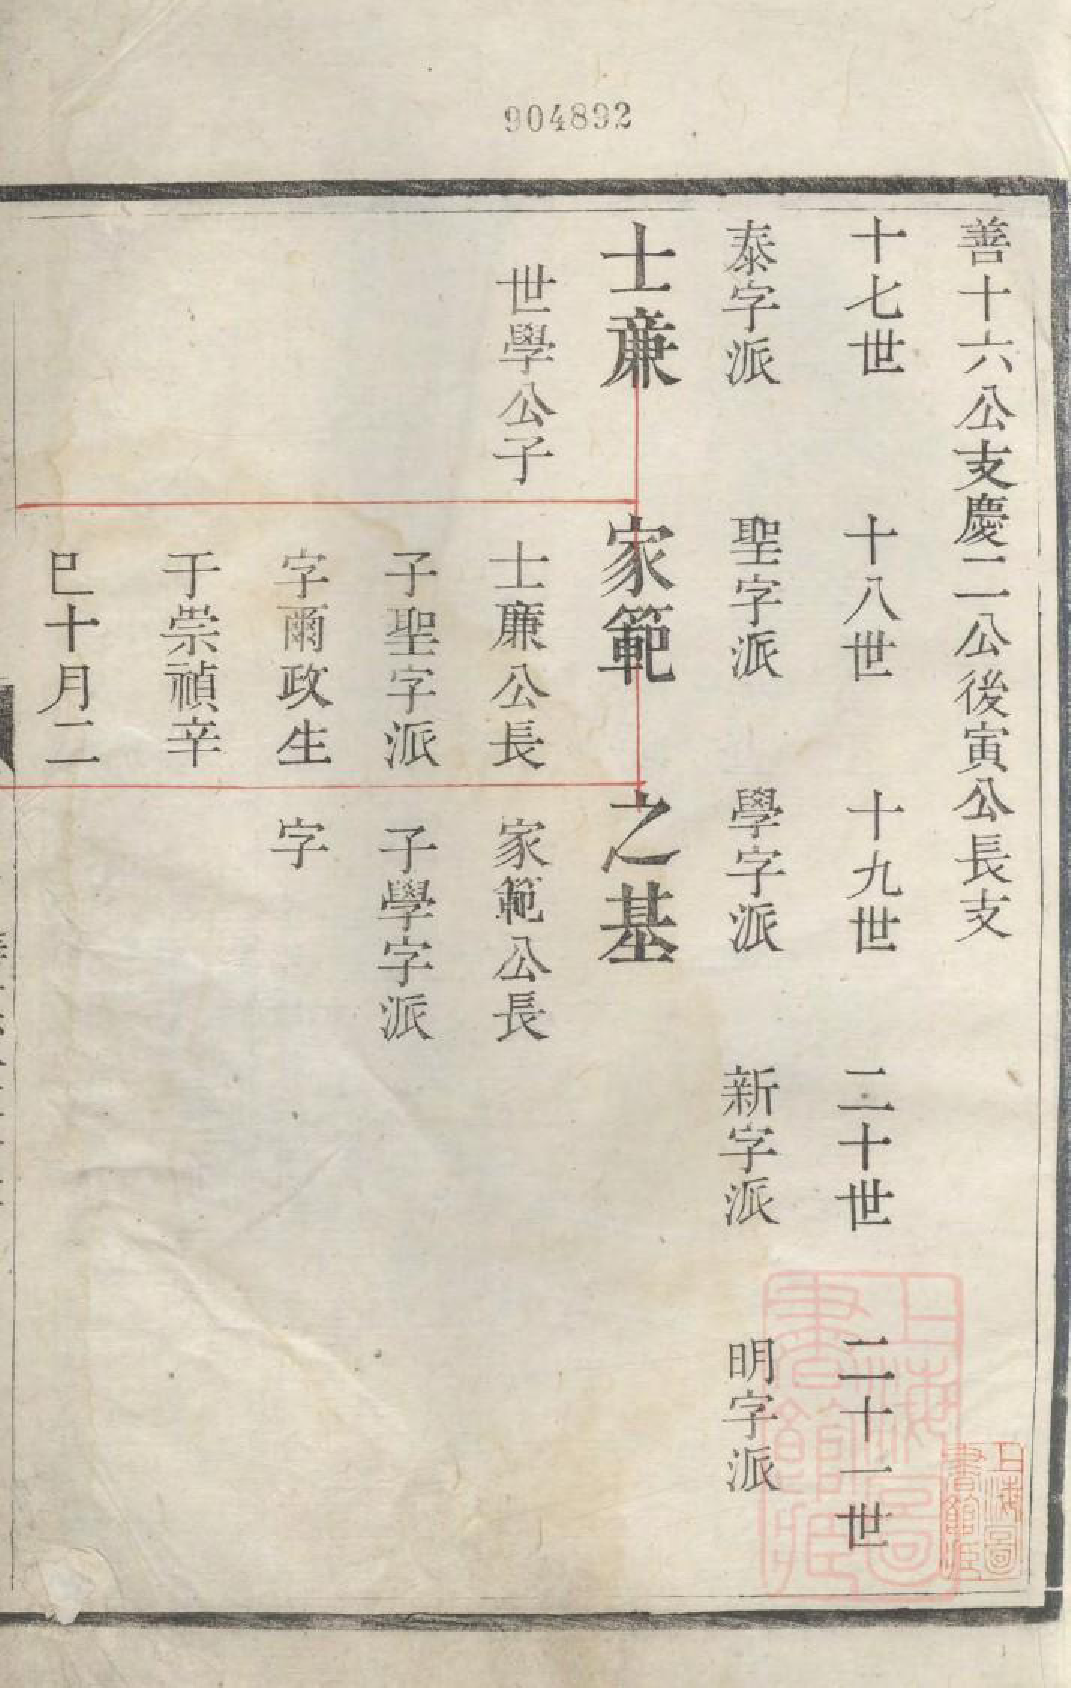 904892
善十六公支慶二公後寅公長支
十七世
十八世
十九世
二十世
二十一世
泰字派
聖字派
學字派
新字派
明字派
士亷
家範
之基
世學公子
士廉公長
家範公長
子聖字派
子學字派
字爾政生
字
于崇禎辛
巳十月二
上海圖
書館藏
上海圖
書館藏